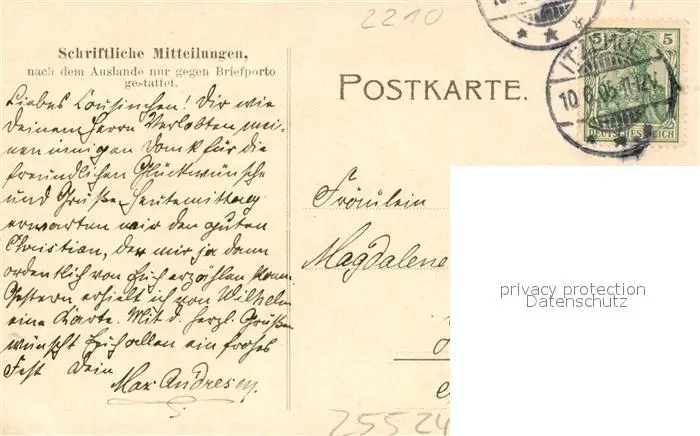 2210
Schriftliche Mitteilungen,
nach dem Auslande nur gegen Briefporto
gestattet.
POSTKARTE.
ITZEHOE
10.6.05.11-12V.
5
DEUTSCHES REICH
Liebes Cousinchen! Dir wie
Deinem Herrn Verlobten mei-
nen innigen Dank für die
freundlichen Glückwünsche
und Grüße. Heutemittag
erwarten wir den guten
Christian, der mir ja dann
ordentlich von Euch erzählen kann.
Gestern erhielt ich von Wilhelm
eine Karte. Mit d. herzl. Grüßen
wünscht Euch allen ein frohes
Fest Dein
Max Andresen.
Fräulein
Magdalene
privacy protection
Datenschutz
25524